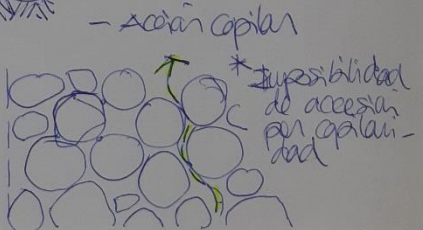 - Acción capilar
* Imposibilidad
de accesión
por capilari-
dad